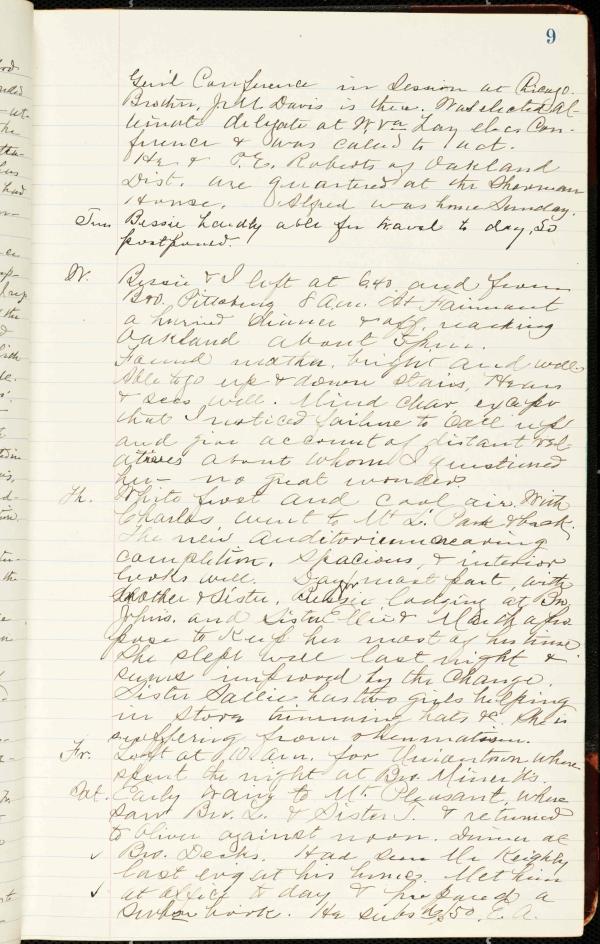 9
Gen'l Conference in Session at Chicago.
Brother, J.M. Davis is there. Was elected Al-
ternate delegate at W.Va Lay elec. Con-
ference & was called to act.
He & T.E. Roberts of Oakland
Dist. are quartered at the Sherman
House. Alfred was home Sunday.
Tues Bessie hardly able for travel to day, so
postponed.
W. Bessie & I left at 6.40 and from
B&O. Pittsburg 8 a.m. At Fairmont
a hurried dinner & off, reaching
Oakland about 5 p.m.
Found mother, bright and well.
Able to go up & down stairs, Hears
& sees well. Mind clear, except
that I noticed failure to call up
and give account of distant rel-
atives about whom I questioned
her - no great wonder.
Th. White frost and cool air. With
Charles, went to Mt. L. Park & back.
The new auditorium nearing
completion. Spacious, & interior
looks well. Day for most part, with
Mother & Sister, Bessie lodging at Bro
John's. and Sister Ellie &
pose to keep her most of his time
She slept well last night &
seems improved by the change.
Sister Sallie has two girls helping
in store trimming hats &c. She is
suffering from rheumatism.
Fr. Left at 10 a.m. for Uniontown where
spent the night at Bro. Minerd's.
Sat. Early train to Mt. Pleasant, where
saw Bro. L. & Sister J. & returned
to Oliver against noon. Dinner at
Bro. Decks. Had seen Mr Keighly
last evg at his home. Met him
at office to day & prepared a
book. He subs $50. C. A.